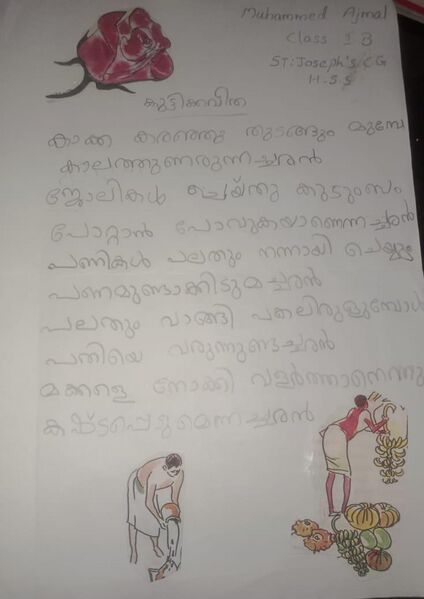 Muhammed Ajmal
Class 1 B
ST: Joseph's C G
H.S.S
കുട്ടിക്കവിത
കാക്ക കരഞ്ഞു തുടങ്ങും മുമ്പേ
കാലത്തുണരുന്നച്ഛൻ
ജോലികൾ ചെയ്തു കുടുംബം
പോറ്റാൻ പോവുകയാണെന്നച്ഛൻ
പണികൾ പലതും നന്നായി ചെയ്യും
പണമുണ്ടാക്കിടുമച്ഛൻ
പലതും വാങ്ങി പകലിരുളുമ്പോൾ
പതിയെ വരുന്നുണ്ടച്ഛൻ
മക്കളെ നോക്കി വളർത്താനെന്നും
കഷ്ടപ്പെടുമെന്നച്ഛൻ